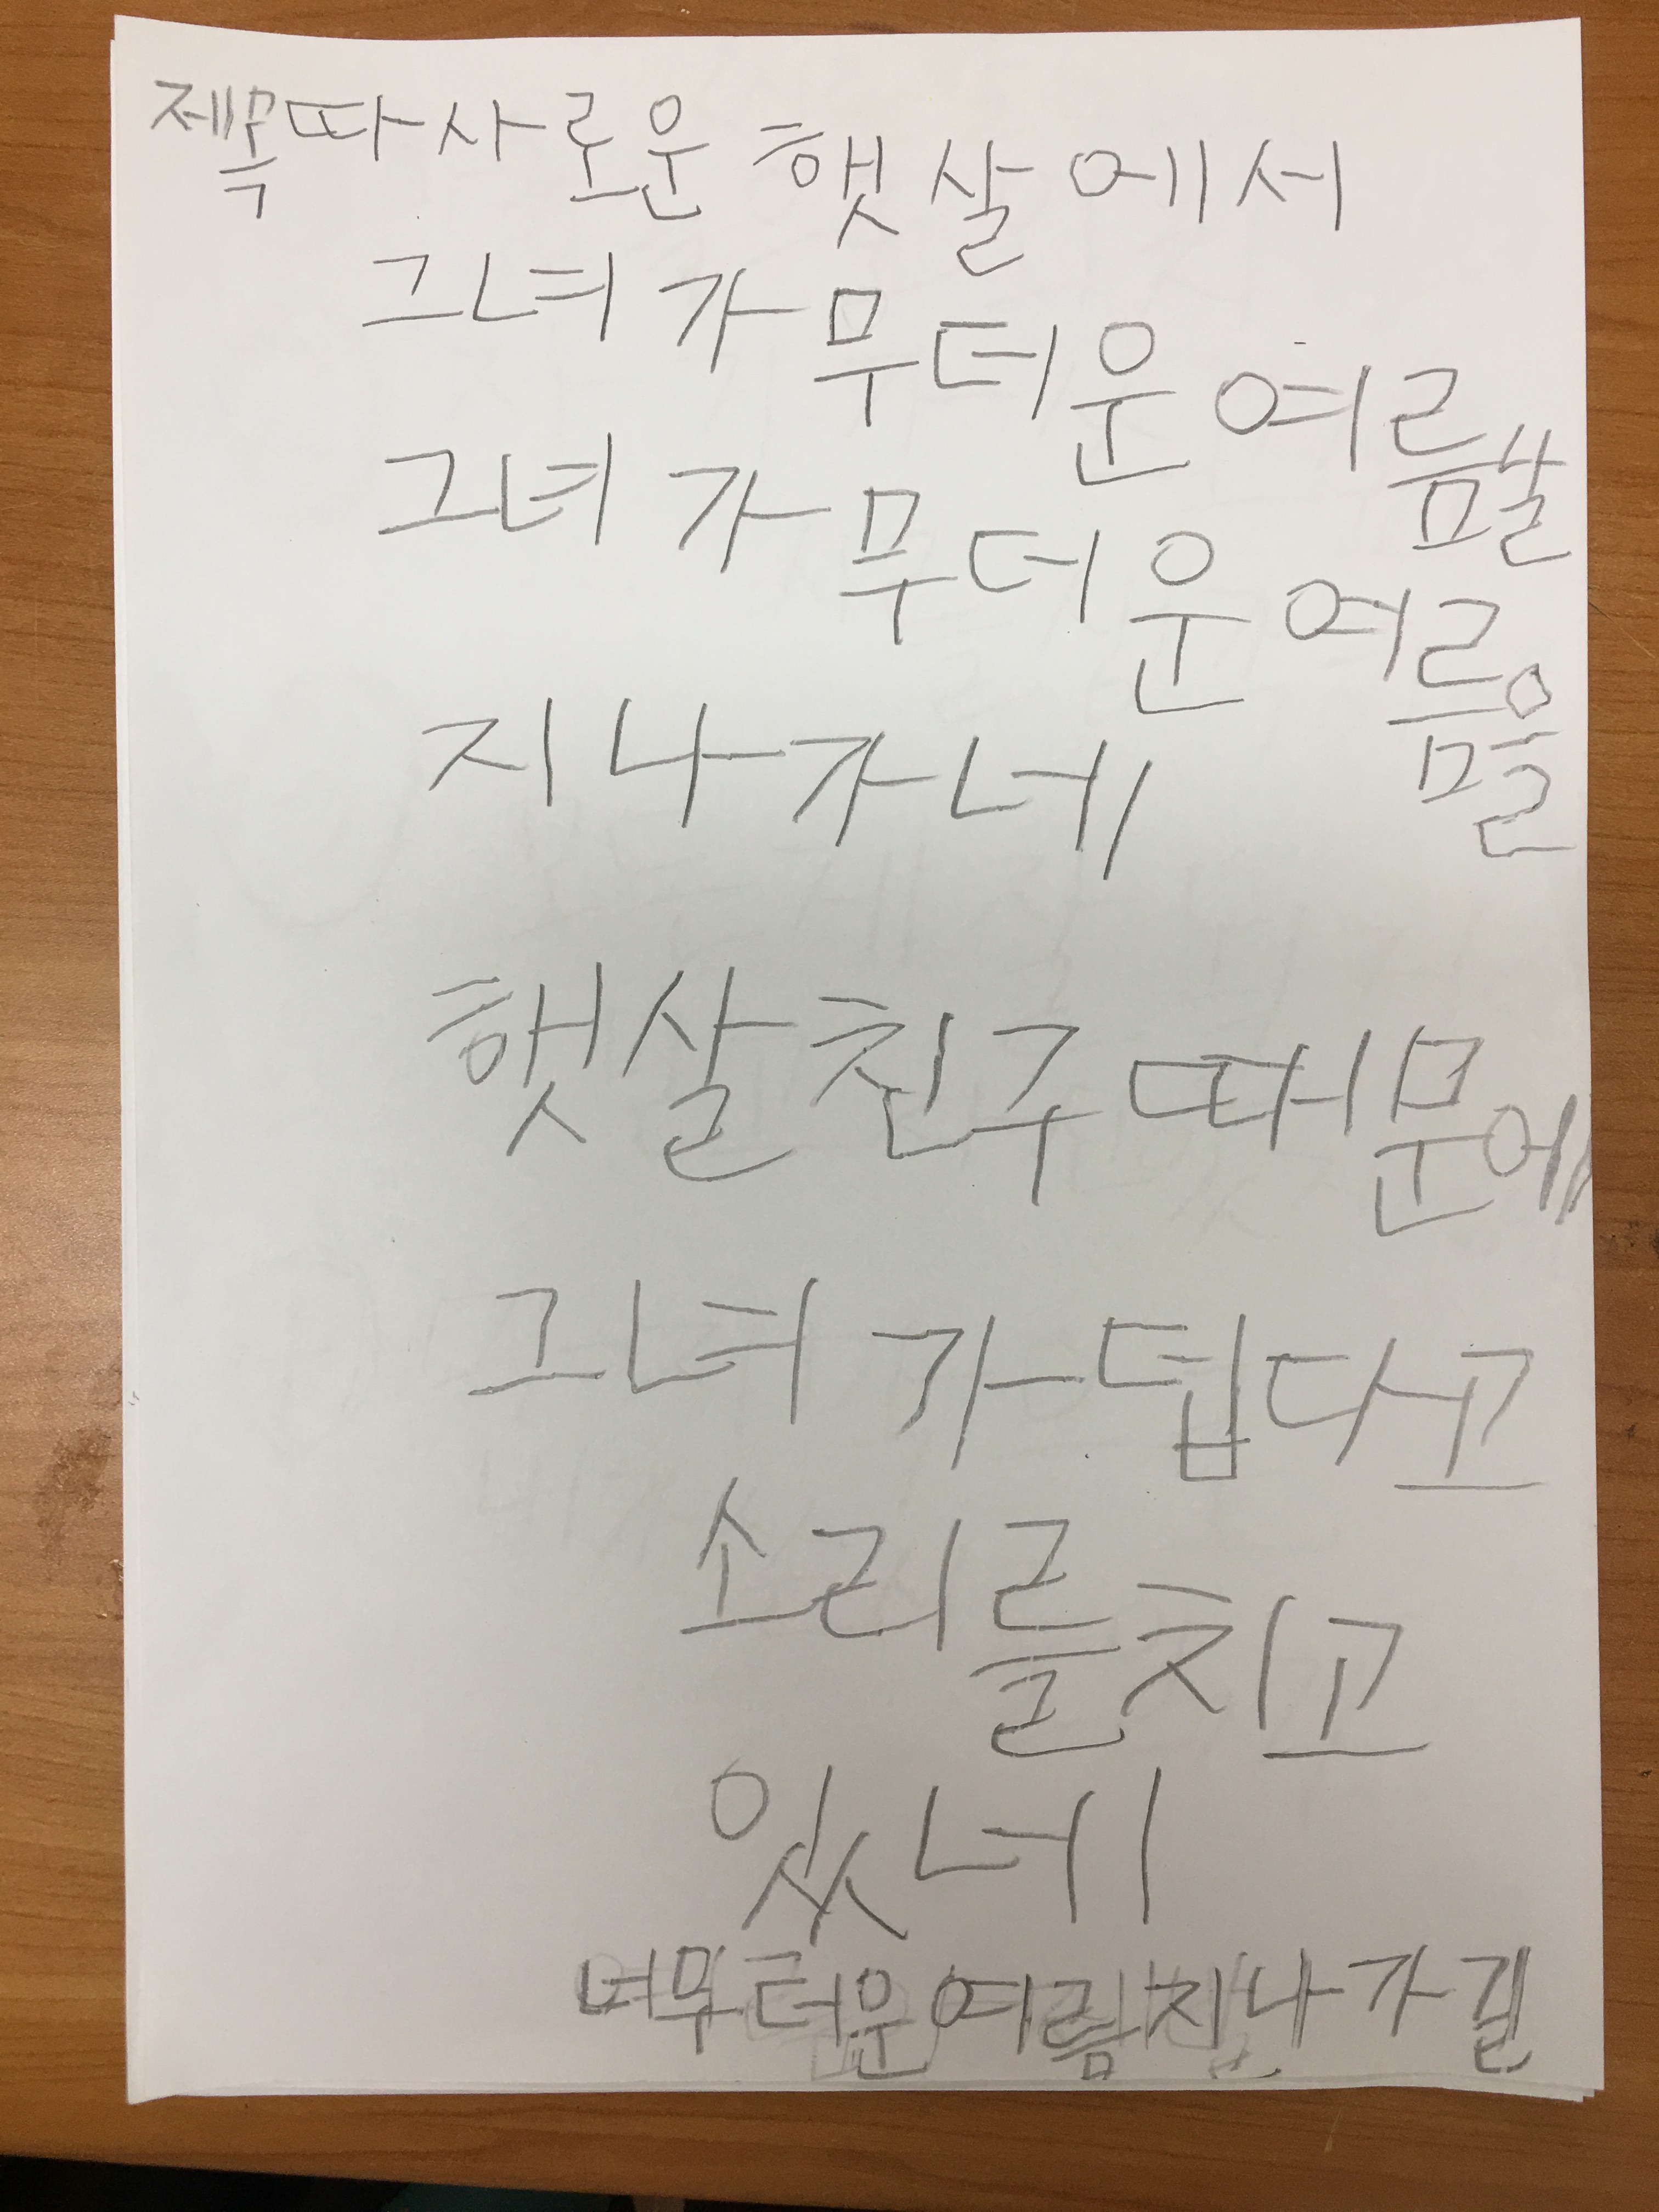 제목 따사로운 햇살에서
그녀 가 무더운 여름날
그녀 가 무더운 여름을
지나가네
햇살 친구 때문에
그녀 가 덥다고
소리를 치고
있네
너무 더운 여름 지나가길